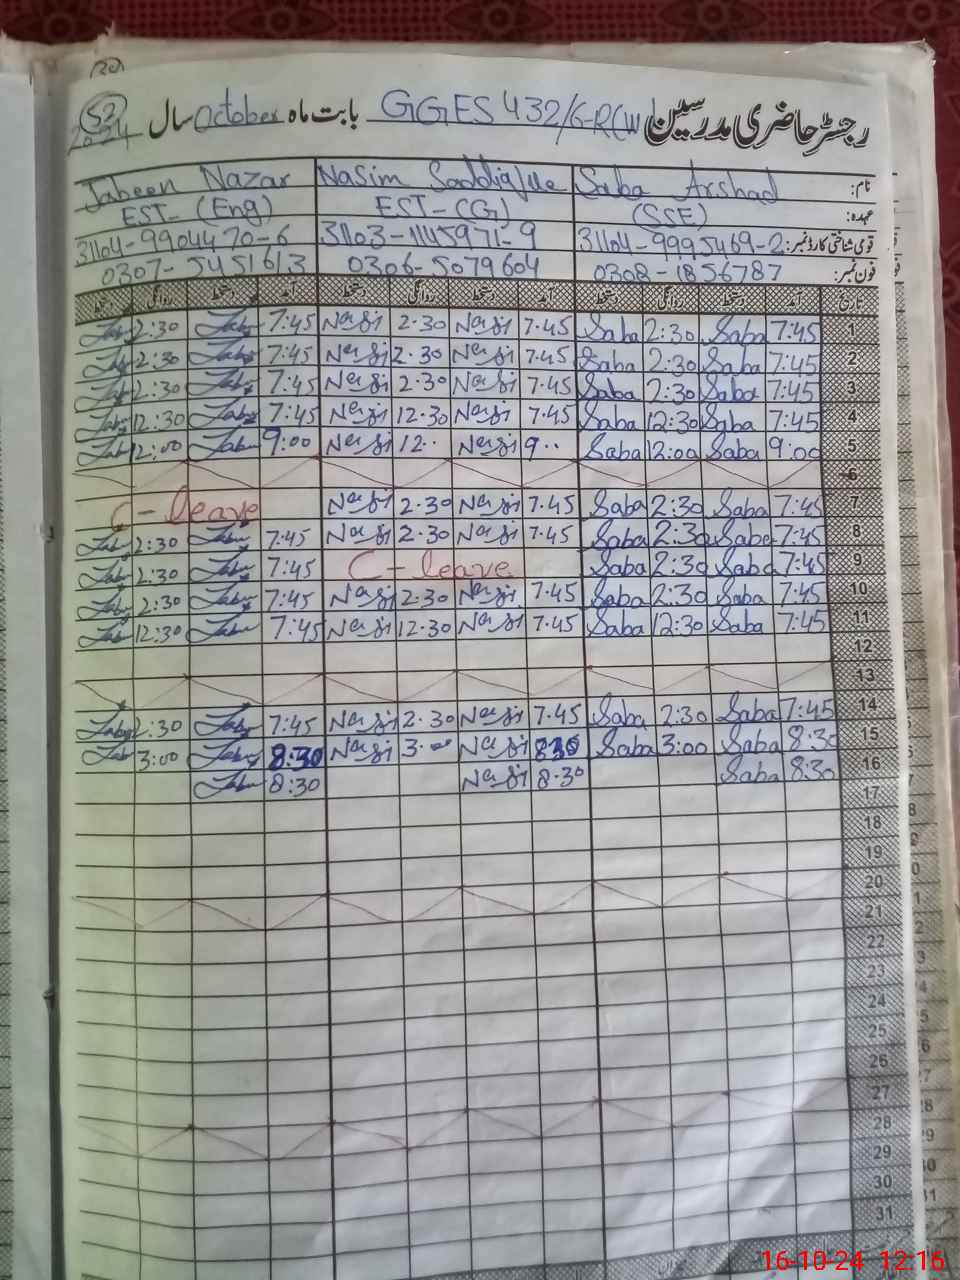 30
52
رجسٹر حاضری مدرسین GGES 432/6-R(W) بابت ماہ October سال 2024
نام: Saba Arshad Nasim Jabeen Nazar
عہدہ: (SSE) EST-(G) EST-(Eng)
قومی شناختی کارڈ نمبر: 31104-9995469-2 31103-1145971-9 31104-9904470-6
فون نمبر: 0308-1856787 0306-5079604 0307-5451613
تاریخ آمد دستخط روانگی دستخط آمد دستخط روانگی دستخط آمد دستخط روانگی دستخط
1 7:45 Saba 2:30 Saba 7.45 Nasji 2.30 Nasji 7:45 2:30
2 7:45 Saba 2:30 Saba 7.45 Nasji 2.30 Nasji 7:45 2:30
3 7:45 Saba 2:30 Saba 7.45 Nasji 2.30 Nasji 7:45 2:30
4 7:45 Saba 12:30 Saba 7.45 Nasji 12.30 Nasji 7:45 12:30
5 9:00 Saba 12:00 Saba 9.. Nasji 12.. Nasji 9:00 12:00
6
7 7:45 Saba 2:30 Saba 7.45 Nasji 2.30 Nasji C-leave
8 7:45 Saba 2:30 Saba 7.45 Nasji 2.30 Nasji 7:45 2:30
9 7:45 Saba 2:30 Saba C-leave 7:45 2:30
10 7:45 Saba 2:30 Saba 7.45 Nasji 2.30 Nasji 7:45 2:30
11 7:45 Saba 12:30 Saba 7.45 Nasji 12.30 Nasji 7:45 12:30
12
13
14 7:45 Saba 2:30 Saba 7.45 Nasji 2.30 Nasji 7:45 2:30
15 8:30 Saba 3:00 Saba 8.30 Nasji 3.00 Nasji 8:30 3:00
16 8:30 Saba 8.30 Nasji 8:30
17
18
19
20
21
22
23
24
25
26
27
28
29
30
31
16-10-24 12:16